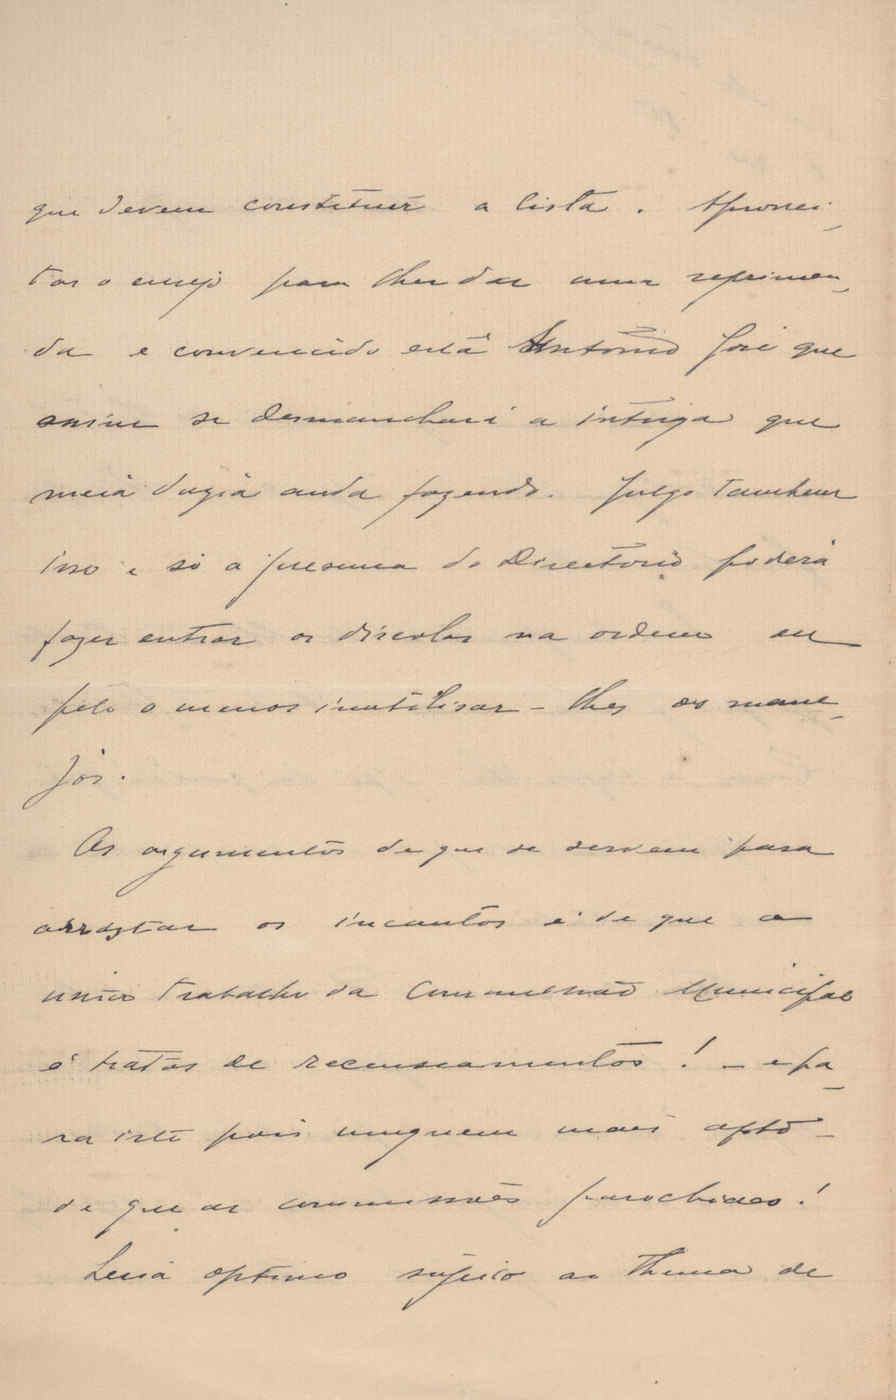 que devem constituir a lista. Aprovei-
tar o ensejo para lhes dar uma reprimen-
da e convencido está António José que
assim se desmanchará a intriga que
meia duzia anda fazendo. Julgo tambem
isso e só a presença do Directorio poderá
fazer entrar os discolos na ordem ou
pelo o menos inutilisar-lhes os mane-
jos.
Os argumentos de que se servem para
arrastar os incautos é de que o
unico trabalho da Commissão Municipal
é tratar de recenseamentos! - e pa-
ra isto pois ninguem mais apto
do que as commissões parochiaes!
Seria optimo ao thema de